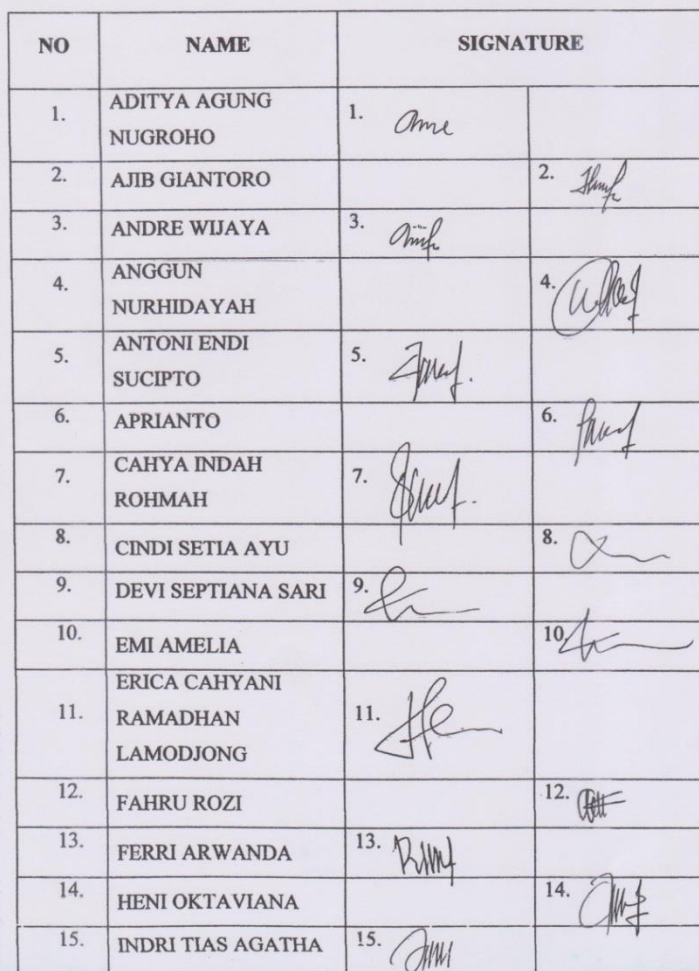 NO NAME SIGNATURE
1. ADITYA AGUNG 1.
NUGROHO
2. AJIB GIANTORO 2.
3. ANDRE WIJAYA 3.
4. ANGGUN 4.
NURHIDAYAH
5. ANTONI ENDI 5.
SUCIPTO
6. APRIANTO 6.
7. CAHYA INDAH 7.
ROHMAH
8. CINDI SETIA AYU 8.
9. DEVI SEPTIANA SARI 9.
10. EMI AMELIA 10.
ERICA CAHYANI
11. RAMADHAN 11.
LAMODJONG
12. FAHRU ROZI 12.
13. FERRI ARWANDA 13.
14. HENI OKTAVIANA 14.
15. INDRI TIAS AGATHA 15.